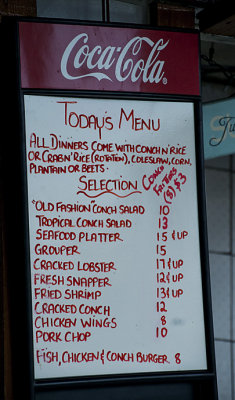 Coca-Cola
TODAY'S MENU
ALL DINNERS COME WITH CONCH N' RICE
OR CRAB N' RICE (ROTATION), COLESLAW, CORN,
PLANTAIN OR BEETS.
SELECTION
CONCH
FRITTERS
(8) $3
"OLD FASHION" CONCH SALAD 10
TROPICAL CONCH SALAD 13
SEAFOOD PLATTER 15 & UP
GROUPER 15
CRACKED LOBSTER 17 & UP
FRESH SNAPPER 12 & UP
FRIED SHRIMP 13 & UP
CRACKED CONCH 12
CHICKEN WINGS 8
PORK CHOP 10
FISH, CHICKEN & CONCH BURGER 8